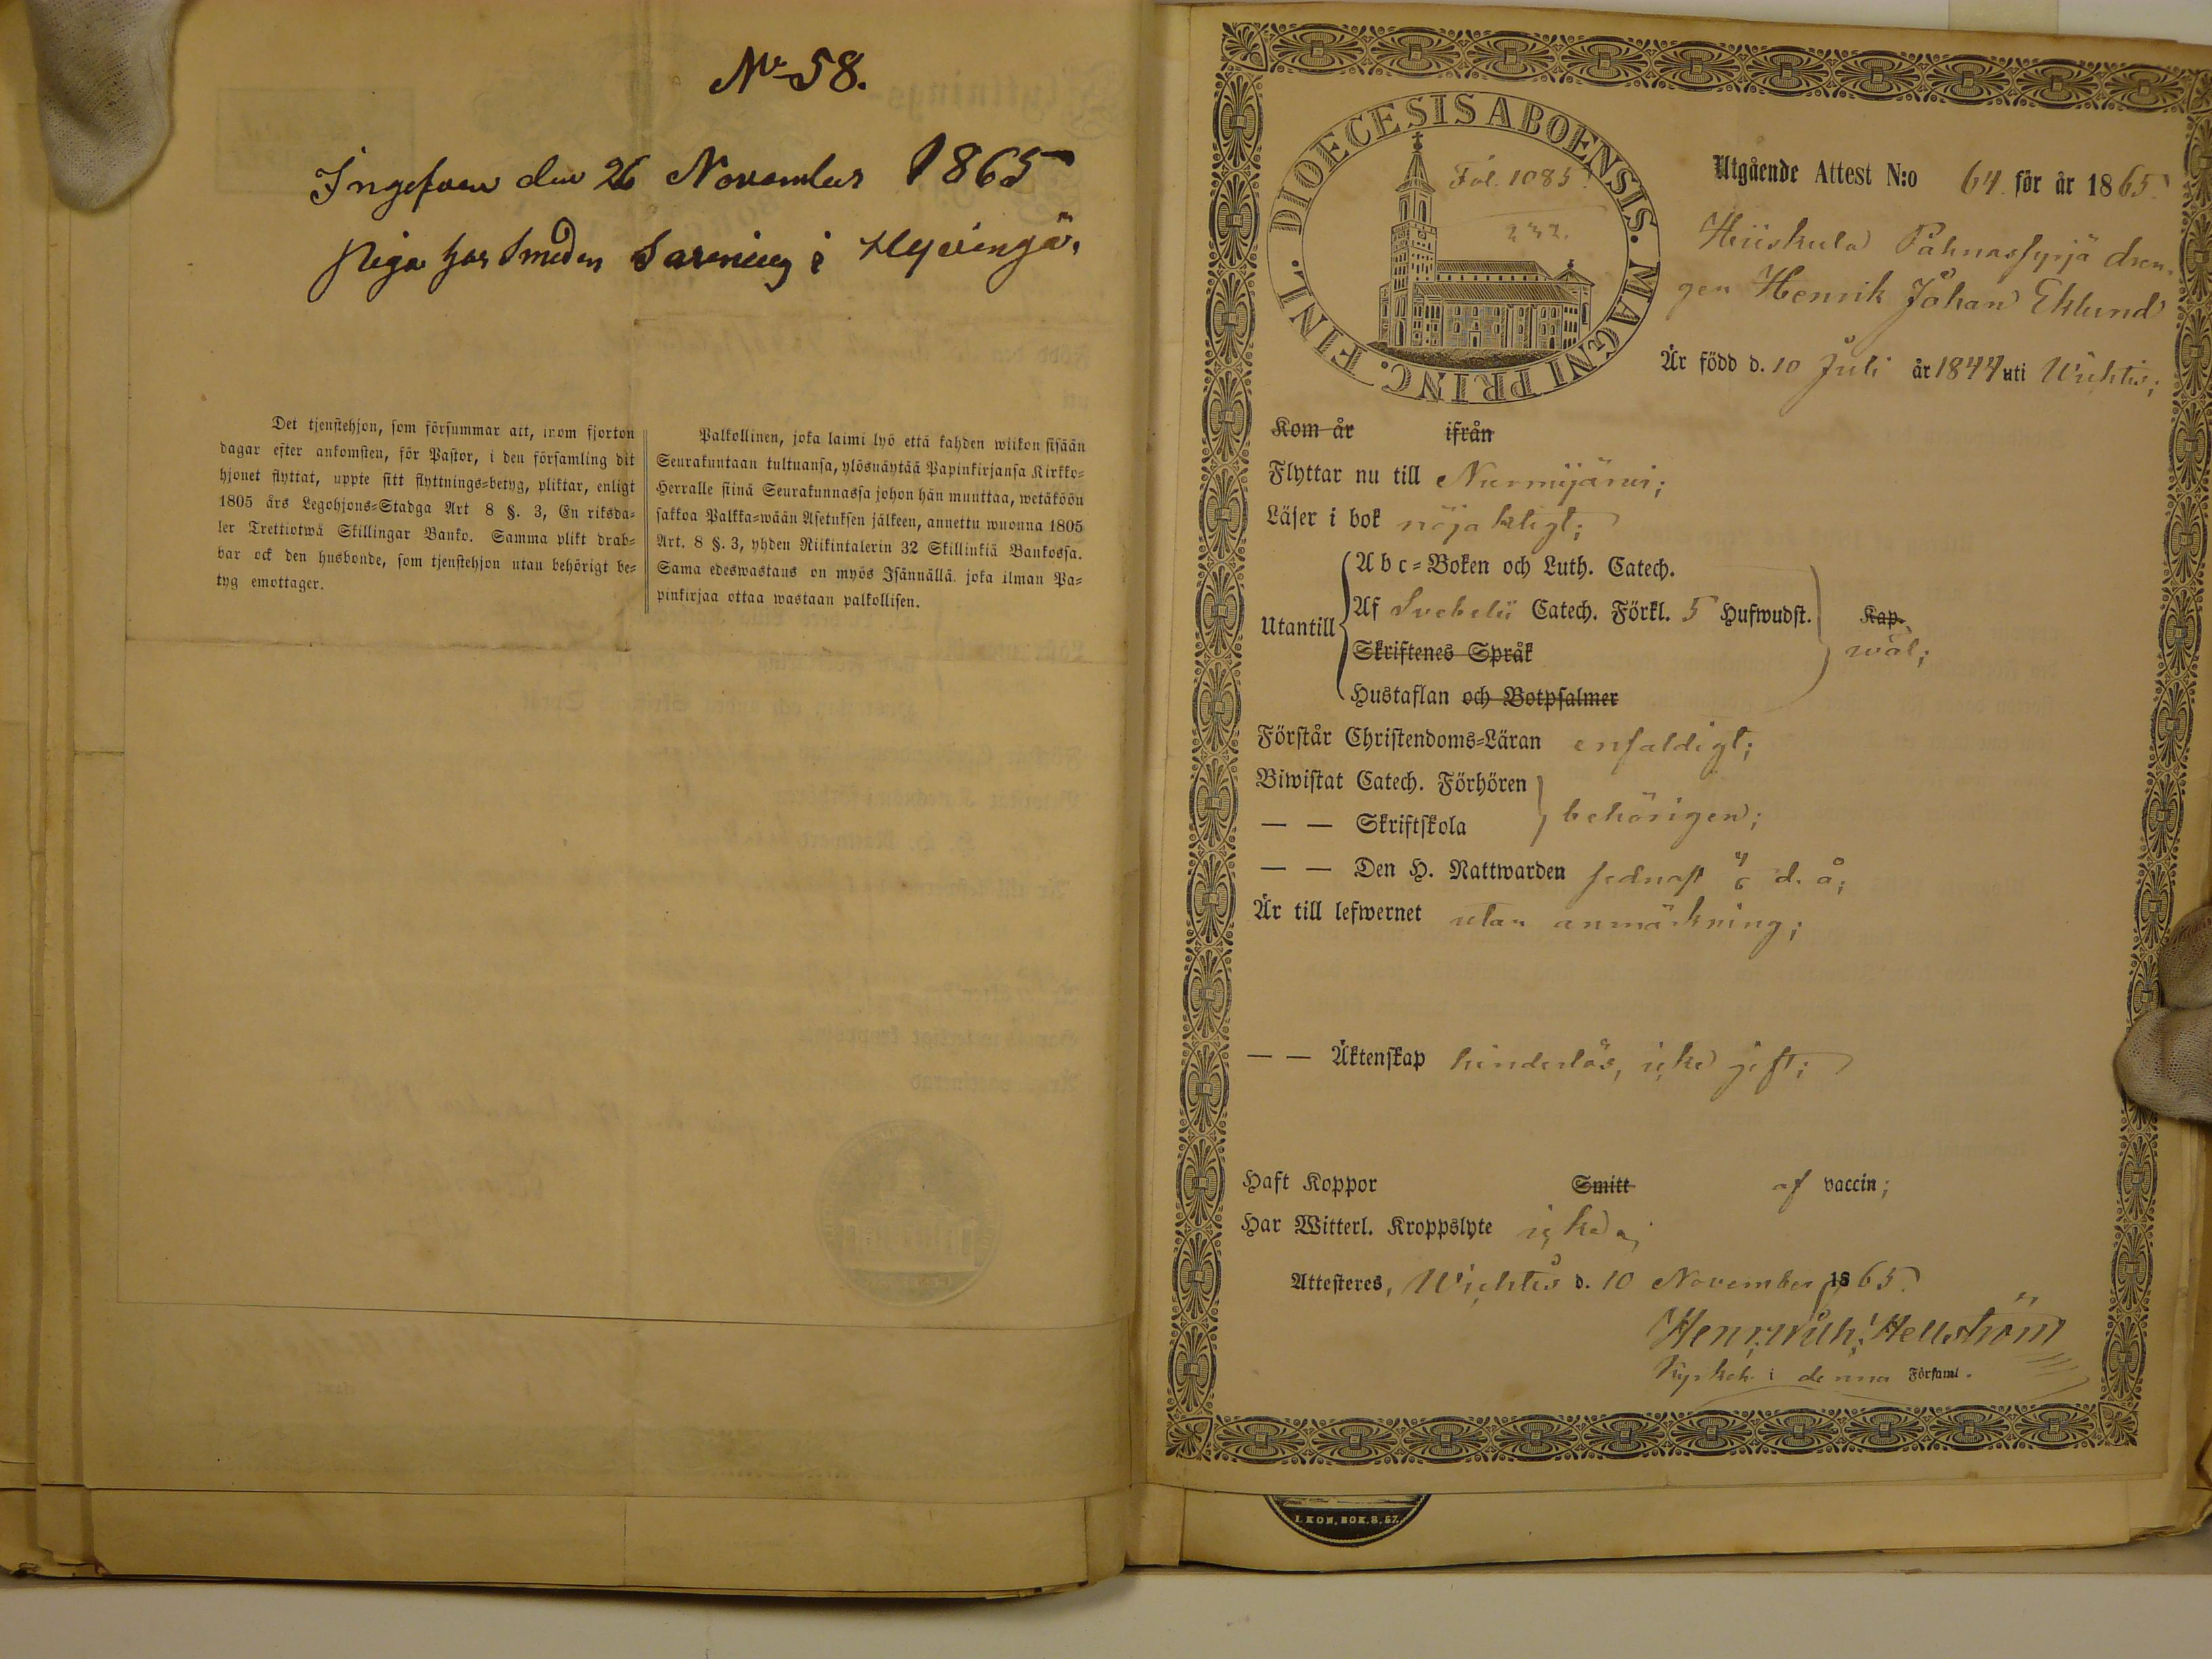 No 58.
Ingifven den 26 November 1865
piga hos Smeden i Hyvingä.
Det tjenstehjon, som försummar att, inom fjorton
dagar efter ankomsten, för Pastor, i den församling dit
hjonet flyttat, uppte sitt flyttnings=betyg, pliktar, enligt
1805 års Legohjons=Stadga Art 8 §. 3, En riksda=
ler Trettiotwå Skillingar Banko. Samma plikt drab=
bar ock den husbonde, som tjenstehjon utan behörigt be=
tyg emottager.
Palkollinen, joka laimi lyö että kahden wiikon sisään
Seurakuntaan tultuansa, ylösnäytää Papinkirjansa Kirkko=
Herralle siinä Seurakunnassa johon hän muuttaa, wetäköön
sakkoa Palkka=wään Asetuksen jälkeen, annettu wuonna 1805
Art. 8 §. 3, yhden Riikintalerin 32 Skillinkiä Bankossa.
Sama edeswastaus on myös Isännällä joka ilman Pa=
pinkirjaa ottaa wastaan palkollisen.
DIOECESIS ABOENSIS. MAGNI PRINC. FINL.
Fol. 1085.
232.
Utgående Attest N:o 64 för år 1865
Hiiskula Pahnassyrjä dren-
gen Henrik Johan Eklund
Är född d. 10 Juli år 1844 uti Wichtis;
Kom år ifrån
Flyttar nu till Nurmijärvi;
Läser i bok nöjaktigt;
Utantill
A b c=Boken och Luth. Catech.
Af Svebelii Catech. Förkl. 5 Hufwudst. Kap.
wäl;
Skriftenes Språk
Hustaflan och Botpsalmer
Förstår Christendoms=Läran enfaldigt;
Biwistat Catech. Förhören
— — Skriftskola behörigen;
— — Den H. Nattwarden sednast d. å;
Är till lefwernet utan anmärkning;
— — Äktenskap hinderlös, icke gift;
Haft Koppor Smitt af vaccin;
Har Witterl. Kroppslyte icke
Attesteres, Wichtis d. 10 November 1865
Hellström
Kyrkoh. i denna Församl.
I. KON. BOK. 8, 57.